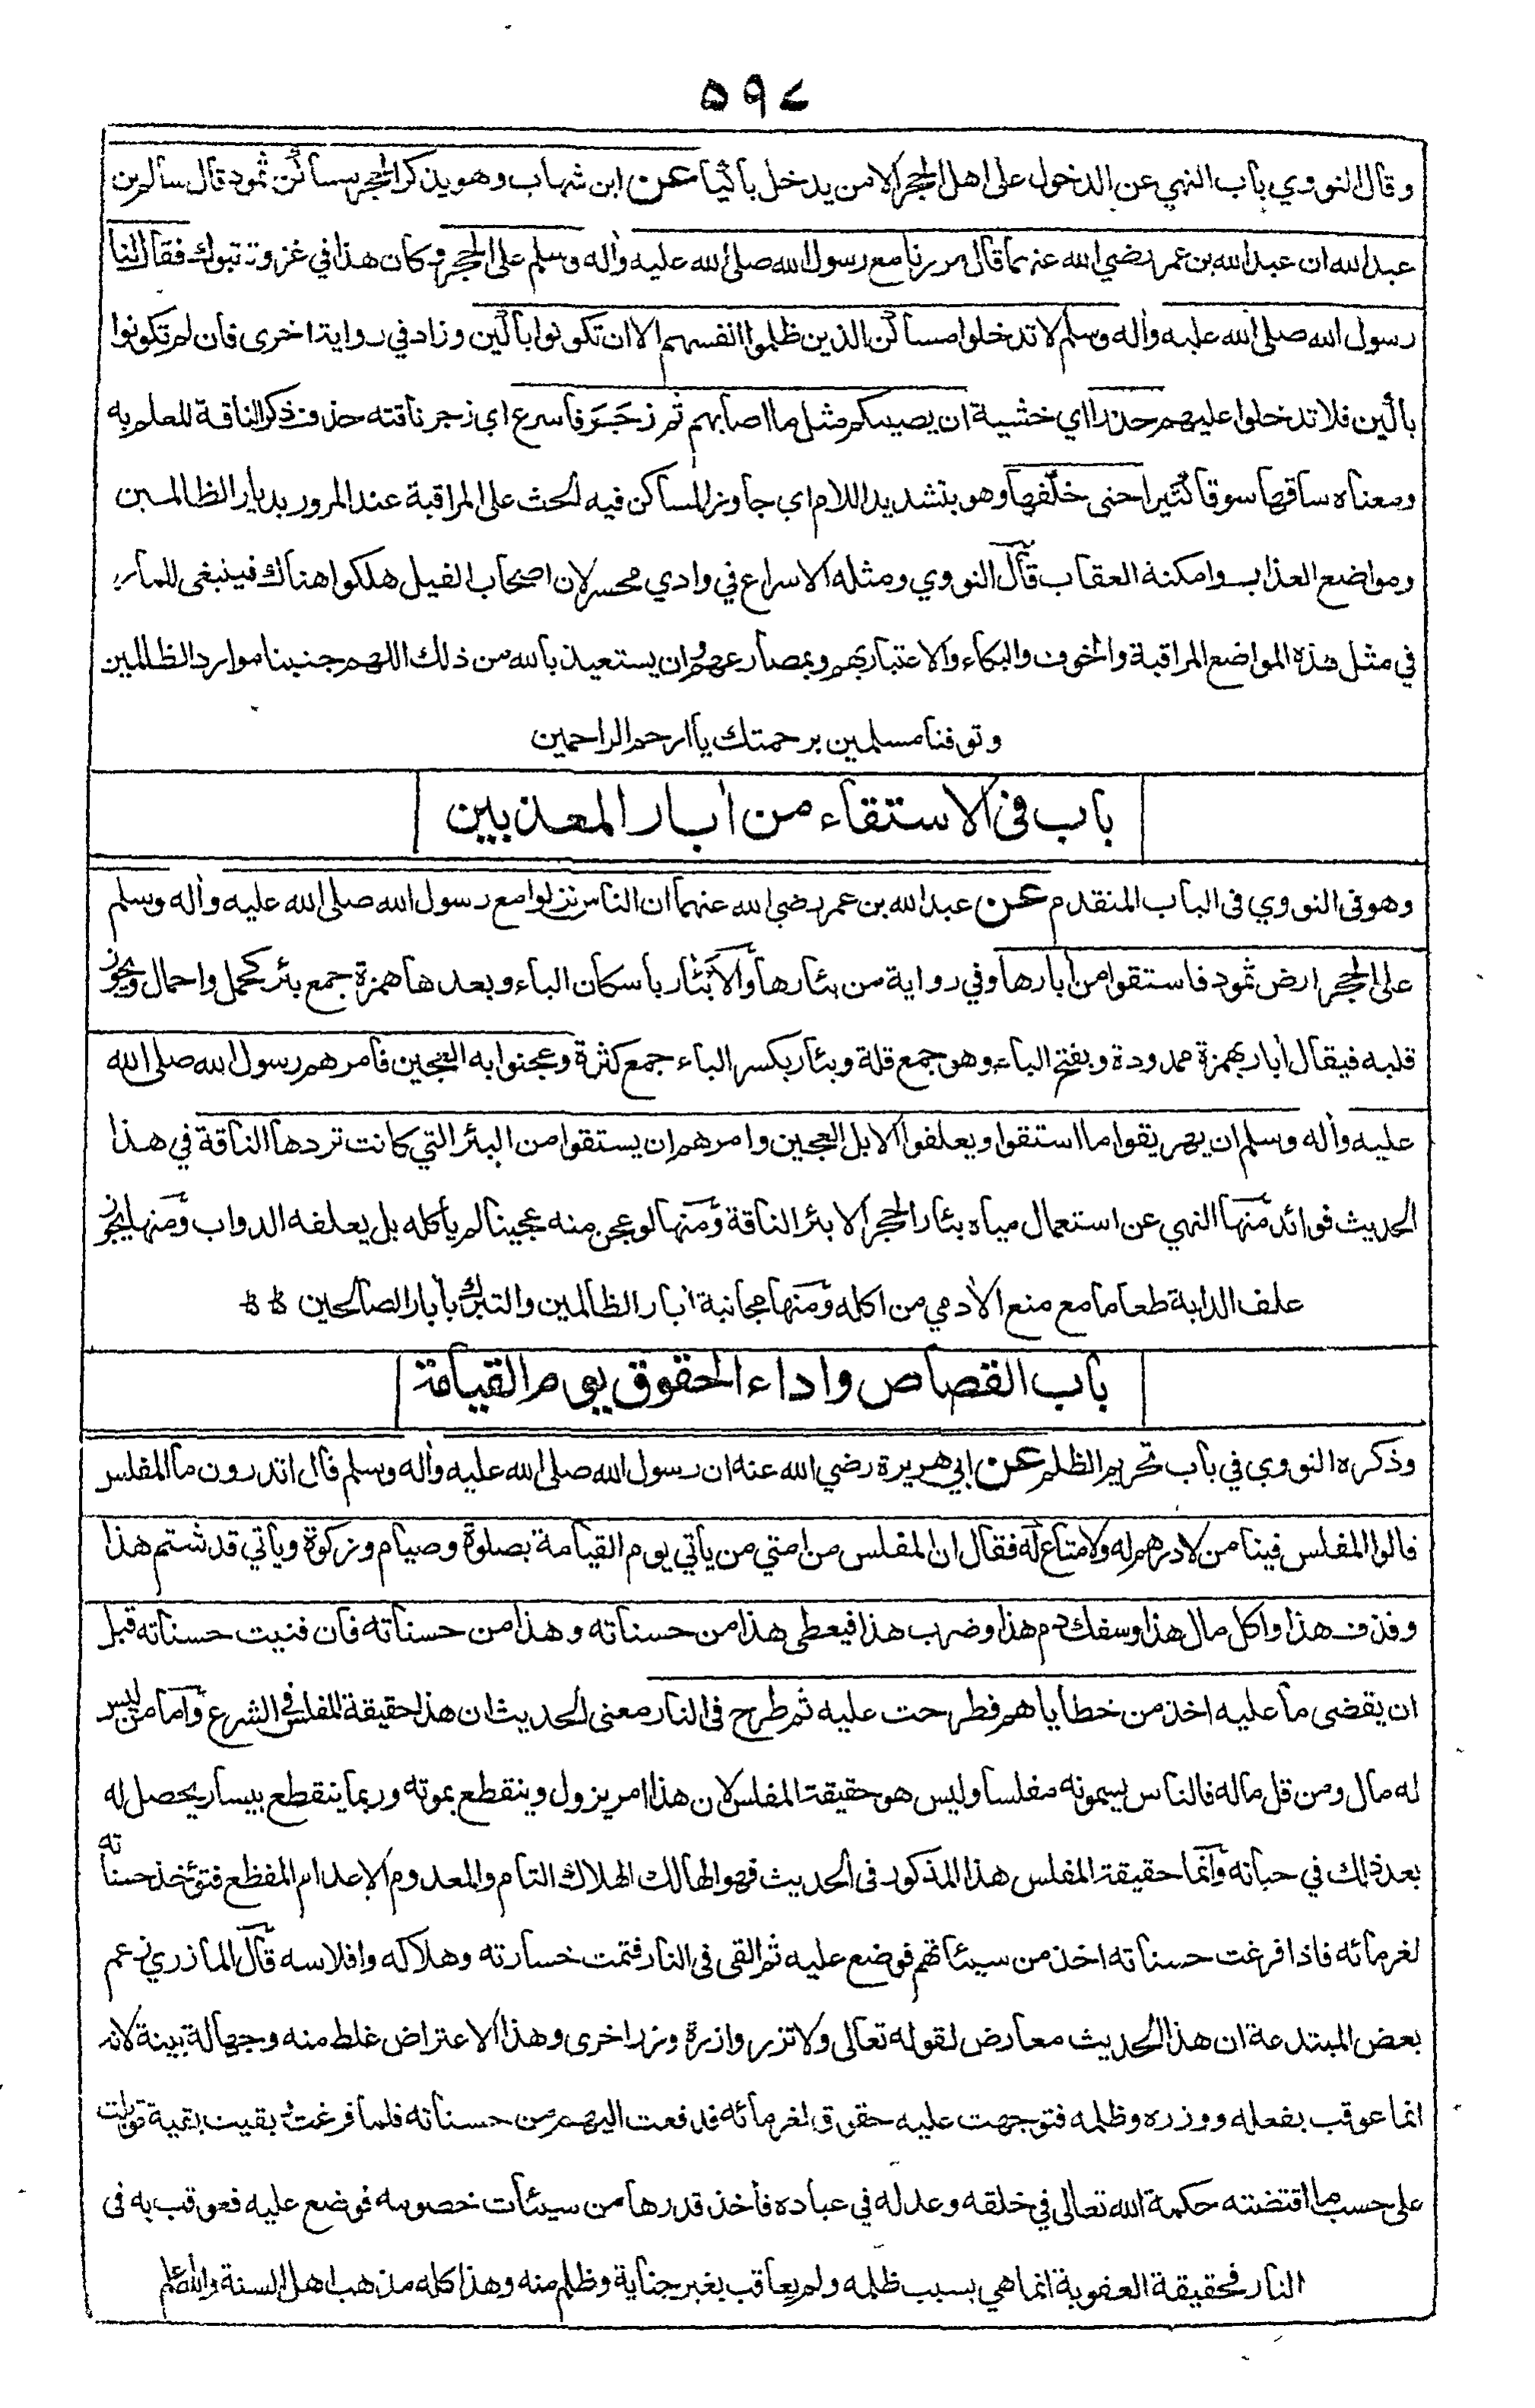 ٥٩٧
وقال النووي باب النهي عن الدخول على اهل الحجر الا من يدخل باكيا عن ابن شهاب وهو يذكر الحجر مساكن ثمود قال سالم بن
عبد الله ان عبد الله بن عمر رضي الله عنهما قال مررنا مع رسول الله صلى الله عليه وأله وسلم على الحجر وكان هذا في غزوة تبوك فقال لنا
رسول الله صلى الله عليه وأله وسلم لا تدخلوا مساكن الذين ظلموا انفسهم الا ان تكونوا باكين وزاد في رواية اخرى فان لم تكونوا
باكين فلا تدخلوا عليهم حذرا اي خشية ان يصيبكم مثل ما اصابهم ثم زَجَرَ فاسرع اي زجر ناقته حذف ذكر الناقة للعلم به
ومعناه ساقها سوقا كثيرا حتى خلّفها وهو بتشديد اللام اي جاوز المساكن فيه الحث على المراقبة عند المرور بديار الظالمين
ومواضع العذاب وامكنة العقاب قال النووي ومثله الاسراع في وادي محسر لان اصحاب الفيل هلكوا هناك فينبغي للمار
في مثل هذه المواضع المراقبة والخوف والبكاء والاعتبار بهم وبمصارعهم وان يستعيذ بالله من ذلك اللهم جنبنا موارد الظالمين
وتوفنا مسلمين برحمتك يا ارحم الراحمين
باب فى الاستقاء من أبار المعذبين
وهو في النووي فى الباب المتقدم عن عبد الله بن عمر رضي الله عنهما ان الناس نزلوا مع رسول الله صلى الله عليه وأله وسلم
على الحجر ارض ثمود فاستقوا من أبارها وفي رواية من بئارها والأبْئار باسكان الباء وبعدها همزة جمع بئر كحمل واحمال ويجوز
قلبه فيقال أبار بهمزة ممدودة وبفتح الباء وهو جمع قلة وبئار بكسر الباء جمع كثرة وعجنوا به العجين فامرهم رسول الله صلى الله
عليه وأله وسلم ان يهريقوا ما استقوا ويعلفوا الابل العجين وامرهم ان يستقوا من البئر التي كانت تردها الناقة في هذا
الحديث فوائد منها النهي عن استعمال مياه بئار الحجر الا بئر الناقة ومنها لو عجن منه عجينا لم يأكله بل يعلفه الدواب ومنها يجوز
علف الدابة طعاما مع منع الأدمي من اكله ومنها مجانبة أبار الظالمين والتبرك بأبار الصالحين
باب القصاص واداء الحقوق يوم القيامة
وذكره النووي في باب تحريم الظلم عن ابي هريرة رضي الله عنه ان رسول الله صلى الله عليه وأله وسلم قال اتدرون ما المفلس
قالوا المفلس فينا من لا درهم له ولا متاع له فقال ان المفلس من امتي من يأتي يوم القيامة بصلوة وصيام وزكوة ويأتي قد شتم هذا
وقذف هذا واكل مال هذا وسفك دم هذا وضرب هذا فيعطى هذا من حسناته وهذا من حسناته فان فنيت حسناته قبل
ان يقضى ما عليه اخذ من خطاياهم فطرحت عليه ثم طرح فى النار معنى الحديث ان هذا حقيقة المفلس في الشرع واما من ليس
له مال ومن قل ماله فالناس يسمونه مفلسا وليس هو حقيقة المفلس لان هذا امر يزول وينقطع بموته وربما ينقطع بيسار يحصل له
بعد ذلك في حياته وانما حقيقة المفلس هذا المذكور فى الحديث فهو الهالك الهلاك التام والمعدوم الاعدام المفظع فتؤخذ حسناته
لغرمائه فاذا فرغت حسناته اخذ من سيئاتهم فوضع عليه ثم القى فى النار فتمت خسارته وهلاكه وافلاسه قال المازري زعم
بعض المبتدعة ان هذا الحديث معارض لقوله تعالى ولا تزر وازرة وزر اخرى وهذا الاعتراض غلط منه وجهالة بينة لانه
انما عوقب بفعله ووزره وظلمه فتوجهت عليه حقوق لغرمائه فدفعت اليهم من حسناته فلما فرغت بقيت بقية قوبلت
على حسب ما اقتضته حكمة الله تعالى في خلقه وعدله في عباده فأخذ قدرها من سيئات خصومه فوضع عليه فعوقب به فى
النار فحقيقة العقوبة انما هي بسبب ظلمه ولم يعاقب بغير جناية وظلم منه وهذا كله مذهب اهل السنة والله اعلم